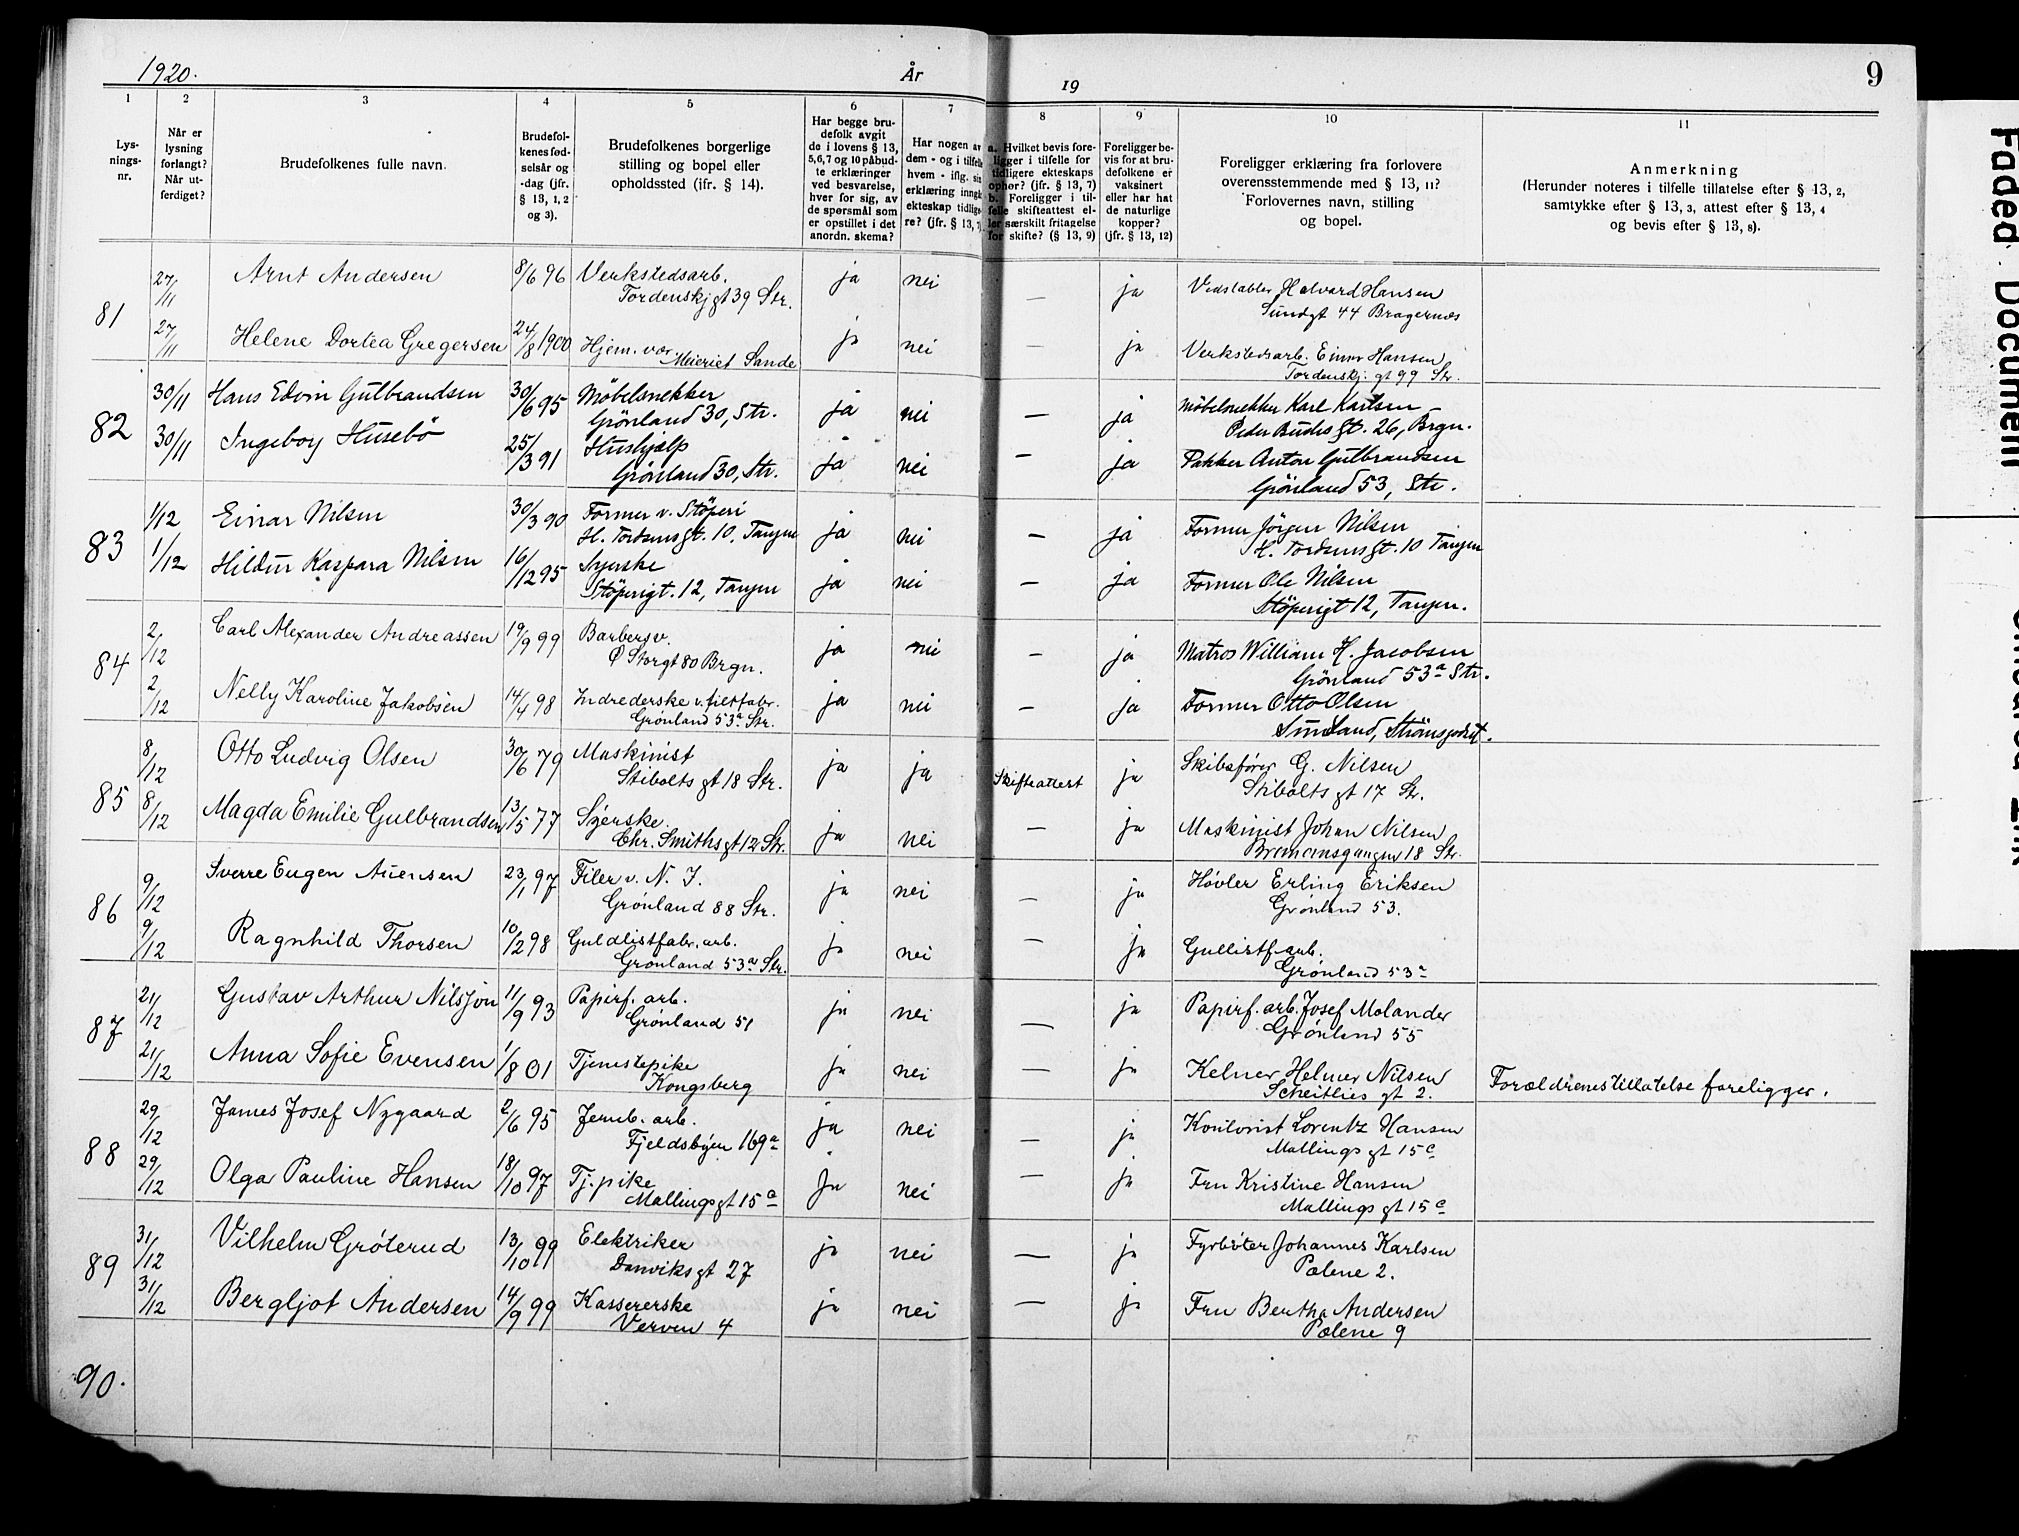 1920. År 19 9
1 2 3 4 5 6 7 8 9 10 11
Lys-
nings-
nr.
Når er
lysning
forlangt?
Når ut-
ferdiget?
Brudefolkenes fulle navn.
Brudefol-
kenes fød-
selsår og
-dag (jfr.
§ 13, 1, 2
og 3).
Brudefolkenes borgerlige
stilling og bopel eller
opholdssted (ifr. § 14).
Har begge bru-
defolk avgit
de i lovens § 13,
5,6,7 og 10 påbud-
te erklæringer
ved besvarelse,
hver for sig, av
de spørsmål som
er opstillet i det
anordn. skema?
Har nogen av
dem - og i tilfelle
hvem - iflg. sin
erklæring inngått
ekteskap tidlige-
re? (jfr. § 13, 7).
a. Hvilket bevis fore-
ligger i tilfelle for
tidligere ekteskaps
ophør? (jfr. § 13, 7)
b. Foreligger i til-
felle skifteattest el-
ler særskilt fritagelse
for skifte? (§ 13, 9)
Foreligger be-
vis for at bru-
defolkene er
vaksinert
eller har hat
de naturlige
kopper?
(jfr. § 13, 12)
Foreligger erklæring fra forlovere
overensstemmende med § 13, 11?
Forlovernes navn, stilling
og bopel.
Anmerkning
(Herunder noteres i tilfelle tillatelse efter § 13, 2,
samtykke efter § 13, 3, attest efter § 13, 4
og bevis efter § 13, 8).
81 27/11 Arnt Andersen 8/6 96 Verkstedsarb. ja nei — ja Vedstabler Halvard Hansen
Tordenskj gt 39 Str. Sundgt 44 Bragernæs
27/11 Helene Dortea Gregersen 24/8 1900 Hjem. vær. ja nei — ja Verkstedsarb. Einar Hansen
Meieriet Sande Tordenskj. gt 99 Str.
82 30/11 Hans Edvin Gulbrandsen 30/6 95 Møbelsnekker ja nei — ja Møbelsnekker Karl Karlsen
Grönland 30, Str. Peder Buchs gt. 26, Brgn.
30/11 Ingeborg Husebö 25/3 91 Hushjælp ja nei — ja Pakker Anton Gulbrandsen
Grönland 30, Str. Grönland 53, Str.
83 1/12 Einar Nilsen 30/3 90 Former v. Støperi ja nei — ja Former Jörgen Nilsen
H. Tordsens gt. 10. Tangen H. Tordsens gt. 10 Tangen
1/12 Hildur Kaspara Nilsen 16/12 95 Syerske ja nei — ja Former Ole Nilsen
Støperigt. 12, Tangen Støperigt 12, Tangen.
84 2/12 Carl Alexander Andreassen 19/9 99 Barbersv. ja nei — ja Matros William H. Jacobsen
Ø Storgt 80 Brgn. Grönland 53a Str.
2/12 Nelly Karoline Jakobsen 14/4 98 Indrederske v. filtfabr. ja nei — ja Former Otto Olsen
Grønland 53a Str. Sundland, Strømsgodset.
85 8/12 Otto Ludvig Olsen 30/6 79 Maskinist ja ja Skifteattest ja Skibsfører G. Nilsen
Stibolts gt 18 Str. Stibolts gt 17 Str.
8/12 Magda Emilie Gulbrandsen 13/5 77 Syerske. ja nei — ja Maskinist Johan Nilsen
Chr. Smiths gt 12 Str. Bremensgangen 18 Str.
86 9/12 Sverre Eugen Auensen 23/1 97 Filer v. N. J. ja nei — ja Høvler Erling Eriksen
Grønland 88 Str. Grønland 53.
9/12 Ragnhild Thorsen 10/12 98 Guldlistfabr. arb. ja nei — ja Gullistf. arb.
Grønland 53a Str. Grønland 53a
87 21/12 Gustav Arthur Nilsson 11/9 93 Papirf. arb. ja nei — ja Papirf. arb. Josef Molander
Grønland 51 Grønland 55
21/12 Anna Sofie Evensen 1/8 01 Tjenestepike ja nei — ja Kelner Helmer Nilsen Forældrenes tillatelse foreligger.
Kongsberg Scheitlies gt 2.
88 29/12 James Josef Nygaard 2/6 95 Jernb. arb. ja nei — ja Kontorist Lorentz Hansen
Fjeldsbyen 169a Mallings gt 15c
29/12 Olga Pauline Hansen 18/10 97 Tj. pike ja nei — ja Fru Kristine Hansen
Mallings gt 15c Mallings gt 15c
89 31/12 Vilhelm Grøterud 13/10 99 Elektriker ja nei — ja Fyrbøter Johannes Karlsen
Danviks gt 27 Pælene 2.
31/12 Bergljot Andersen 14/9 99 Kassererske ja nei — ja Fru Bertha Andersen
Verven 4 Pælene 9
90.
Faded Document